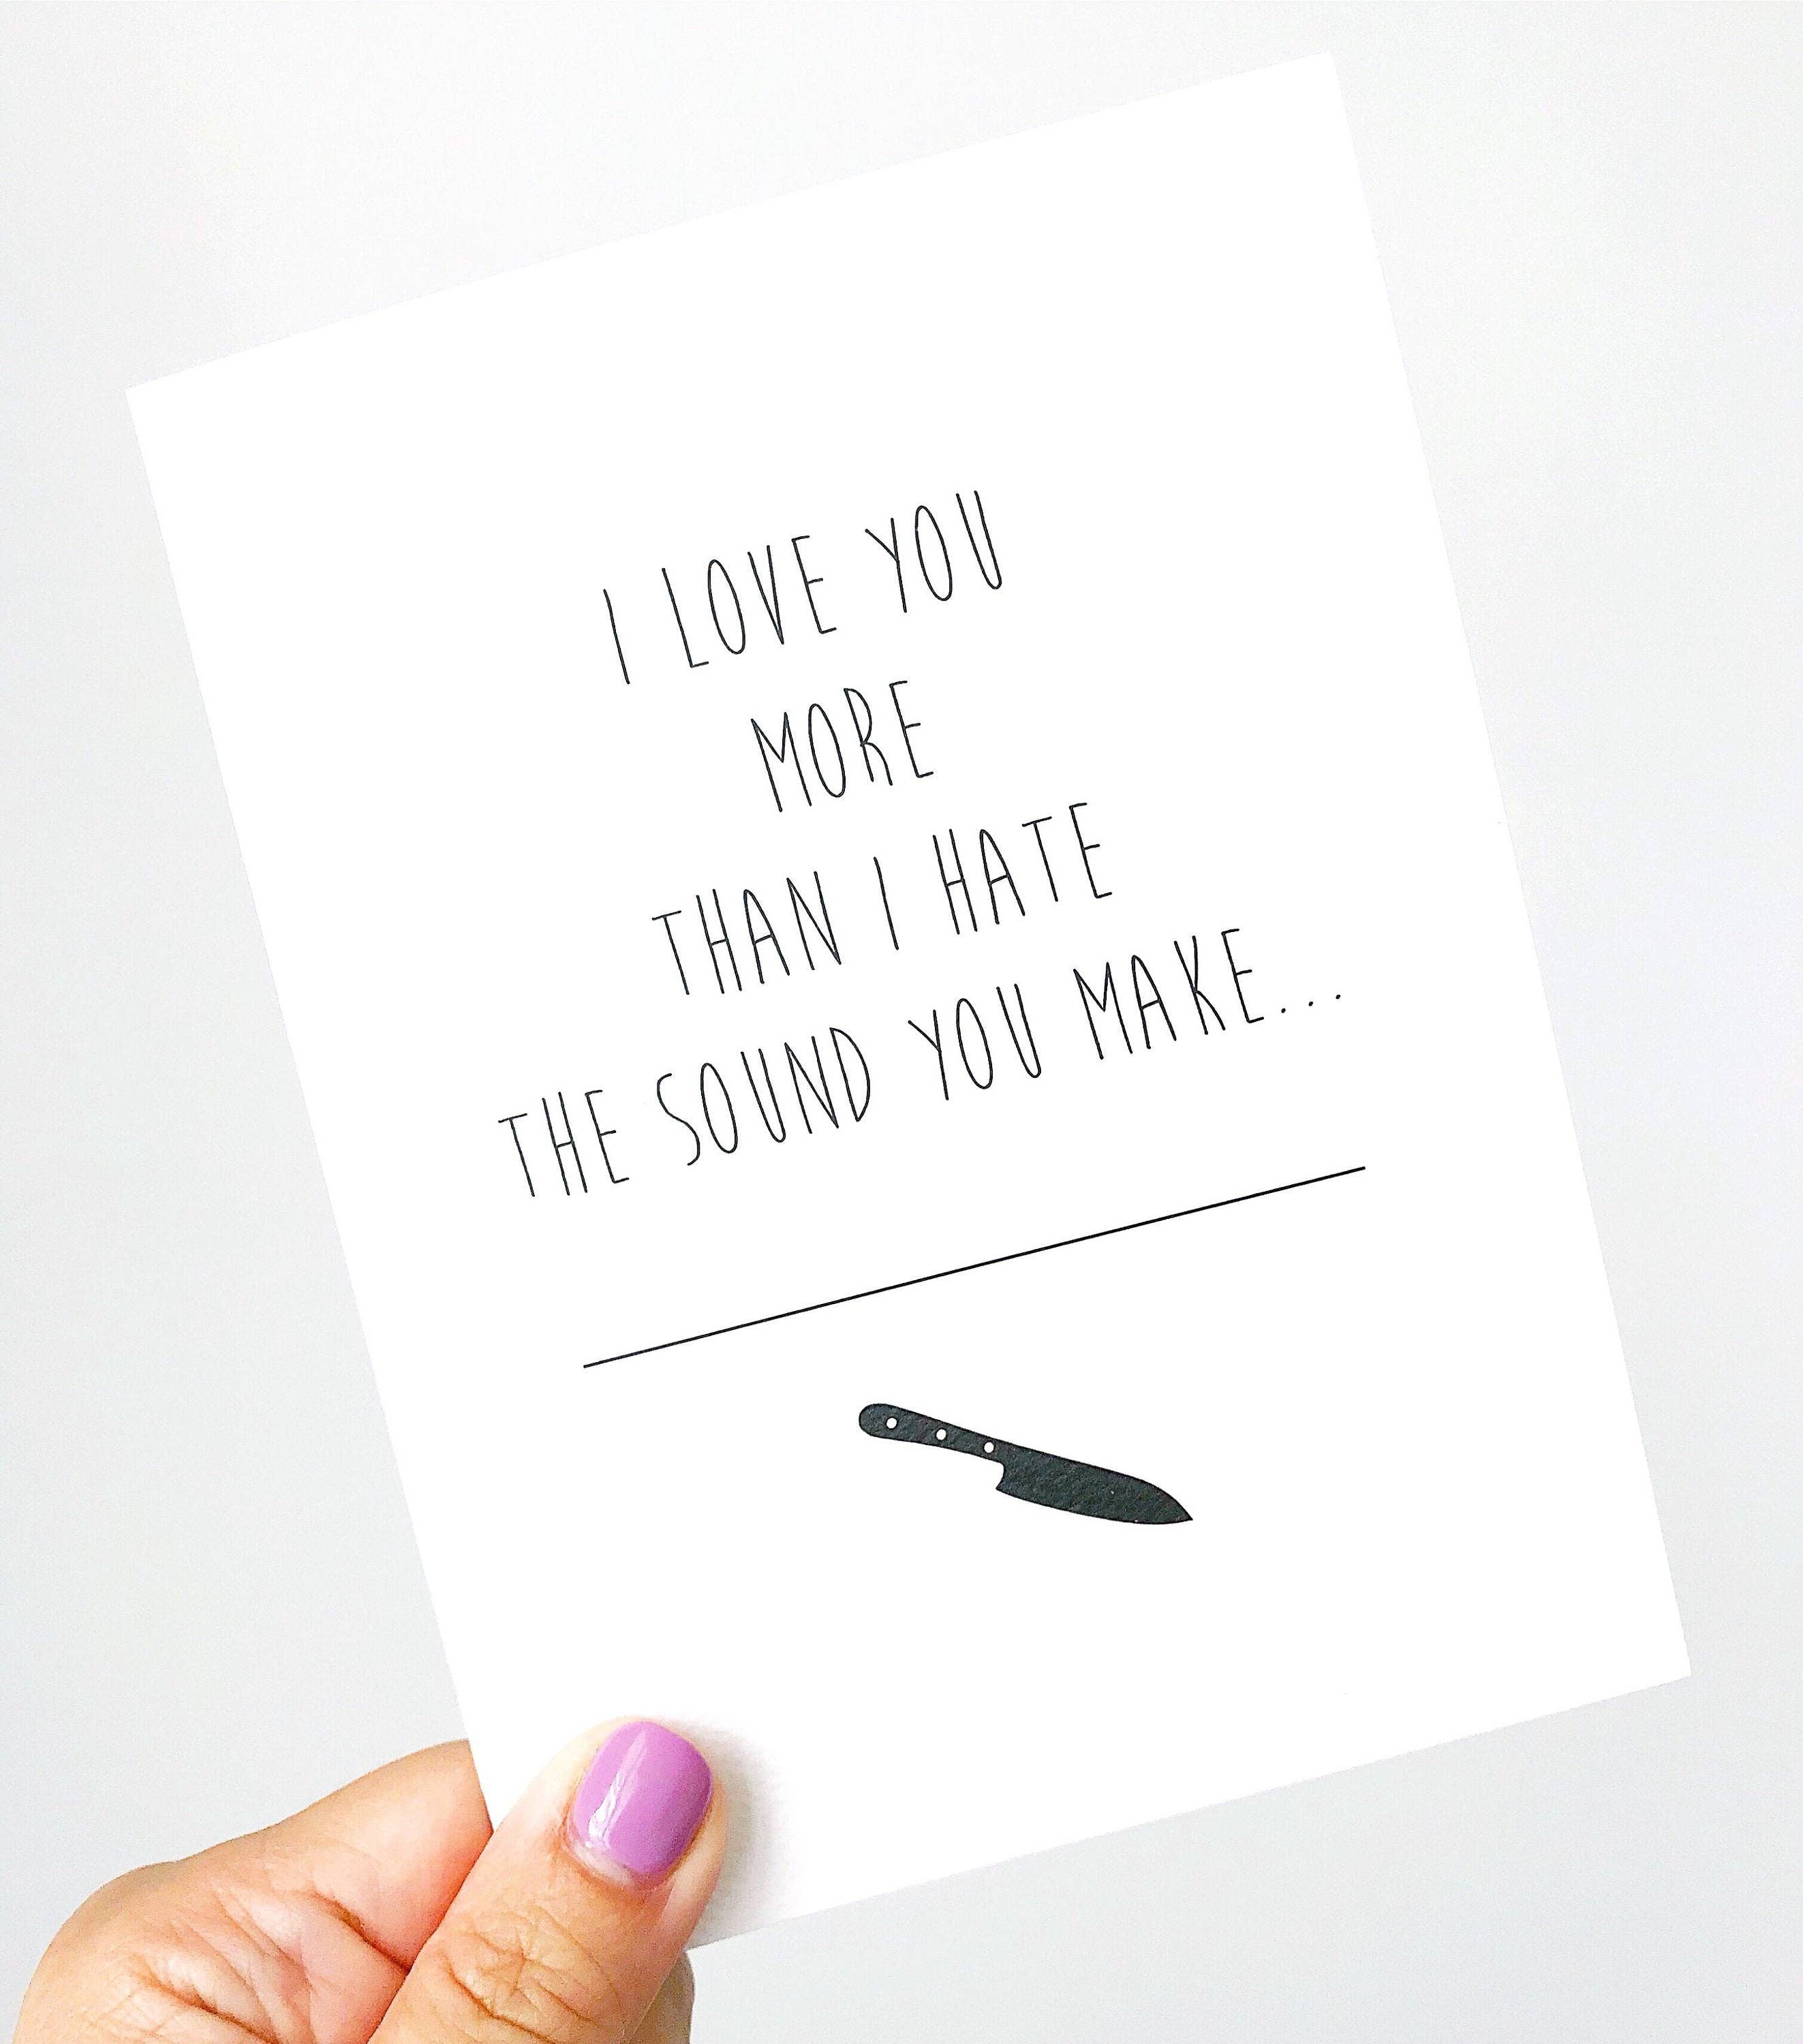 I LOVE YOU
MORE
THAN I HATE
THE SOUND YOU MAKE...